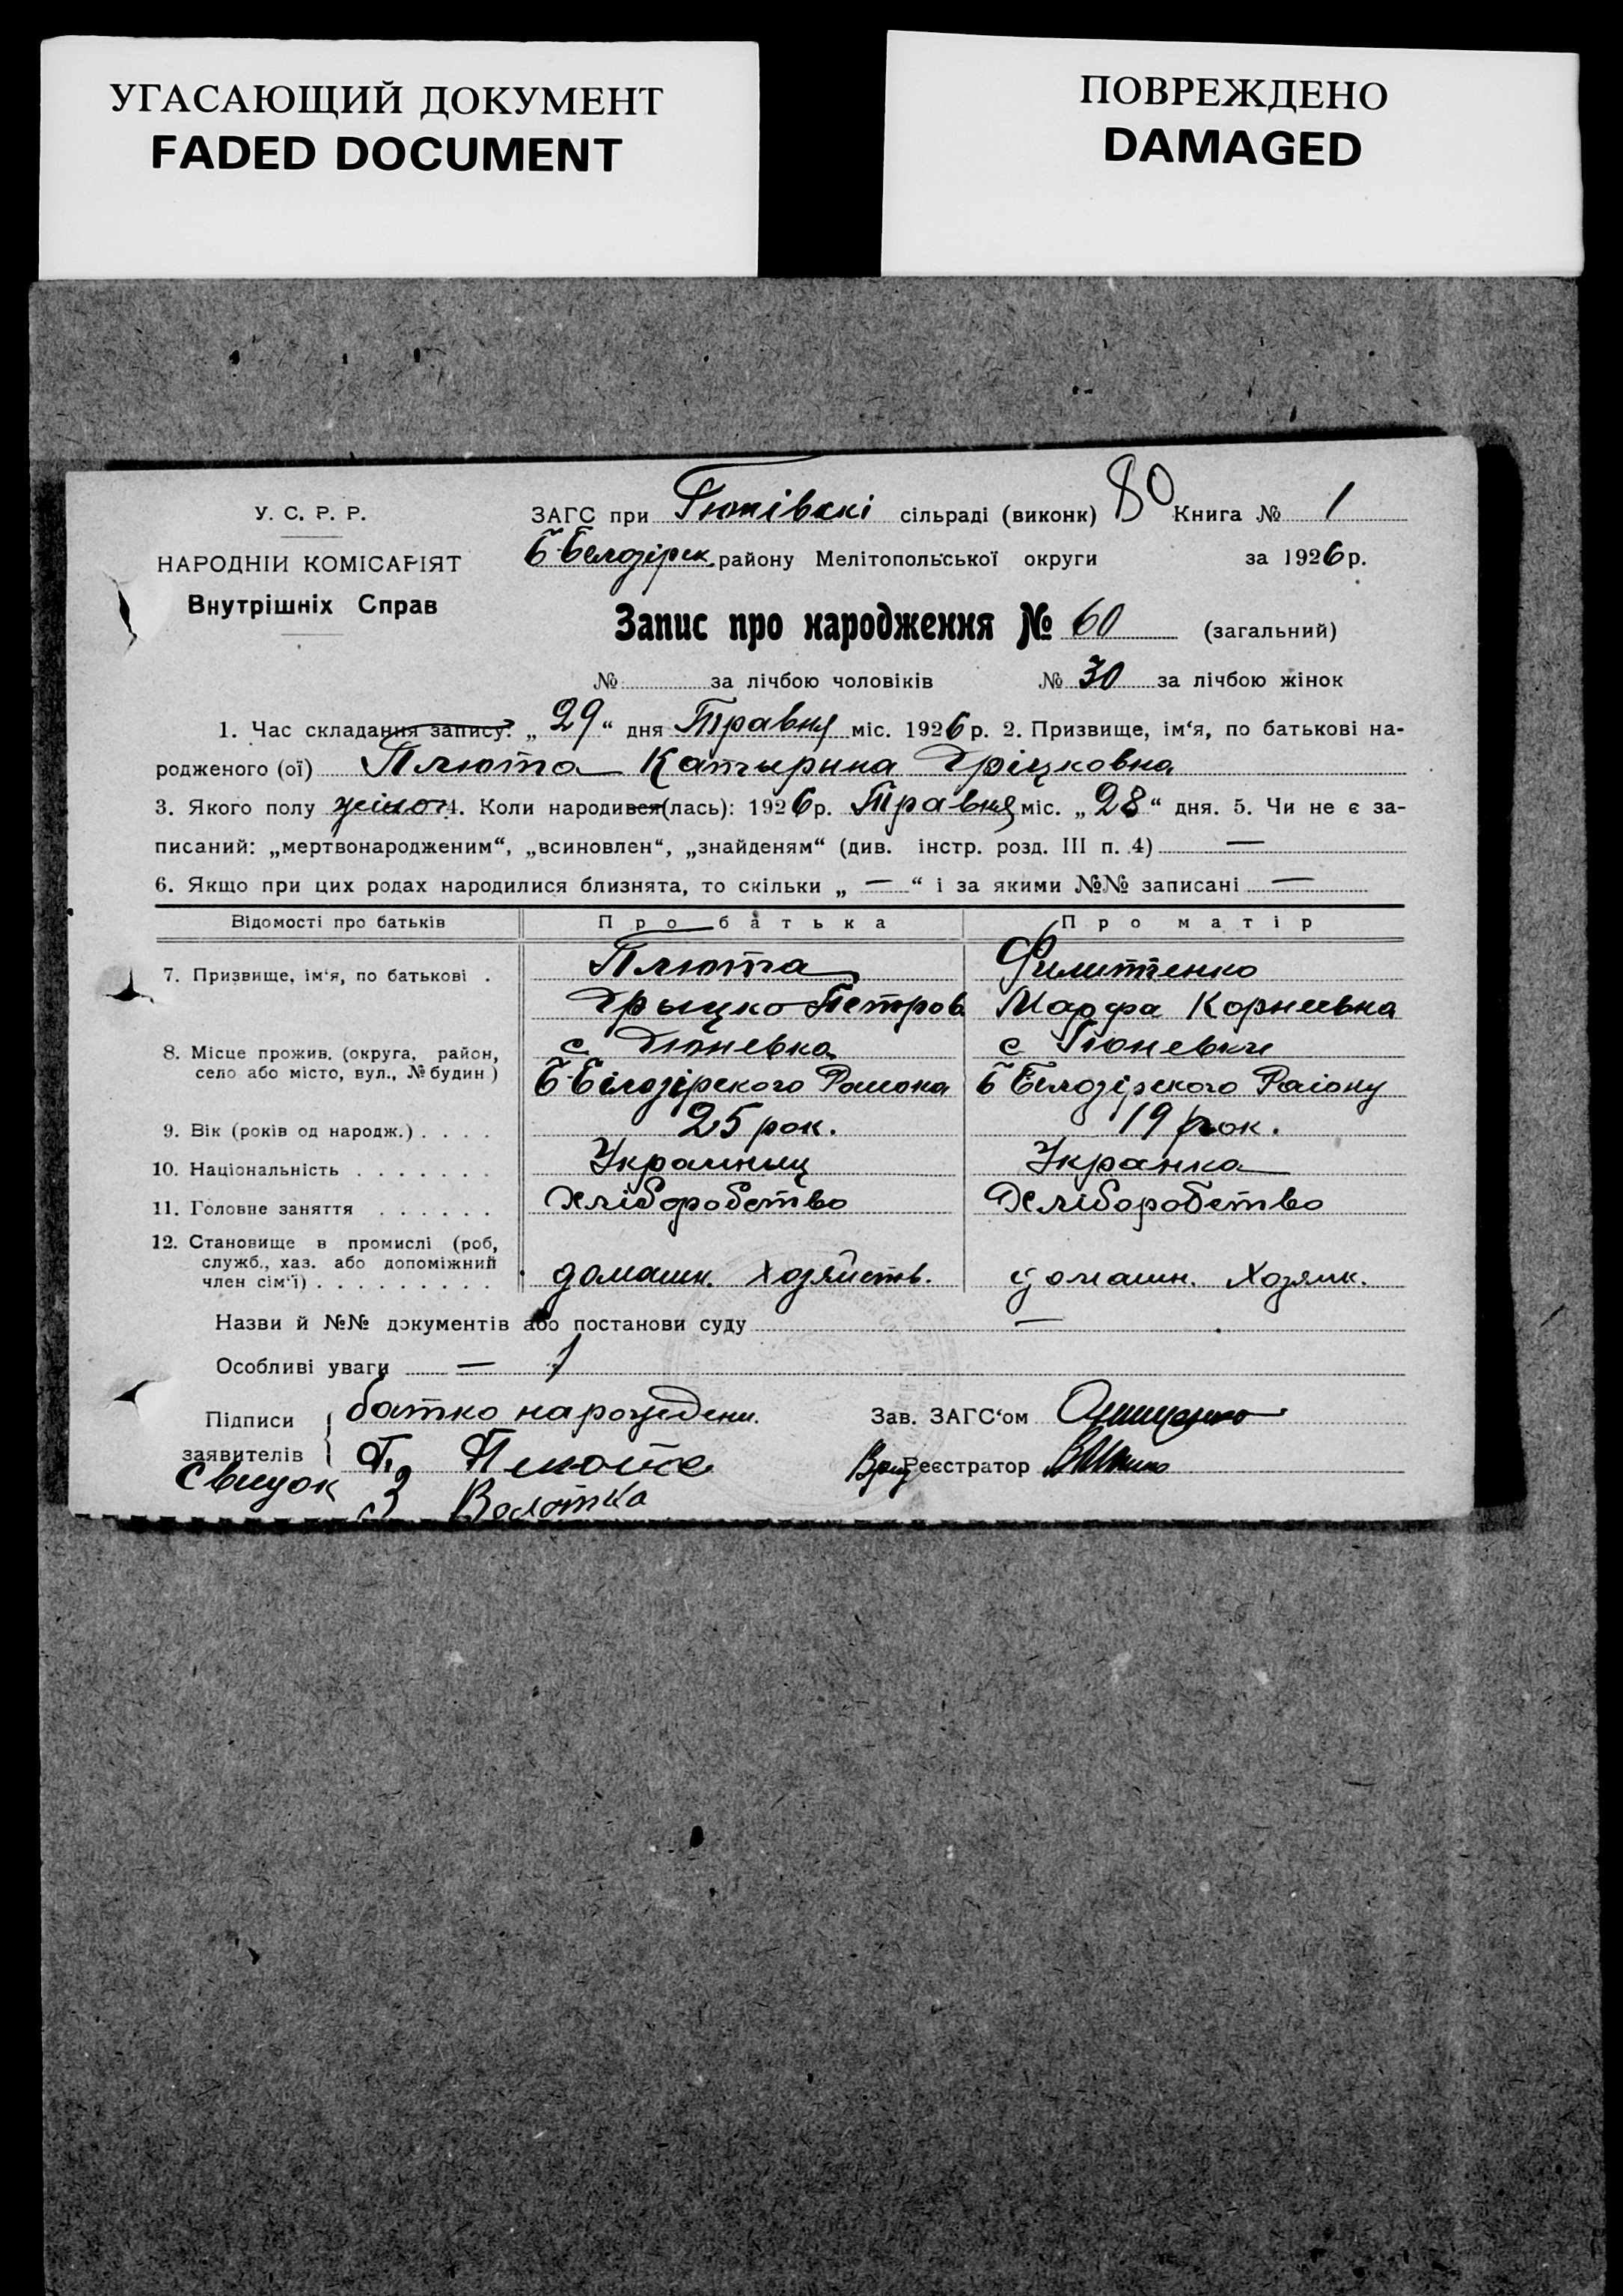 УГАСАЮЩИЙ ДОКУМЕНТ
FADED DOCUMENT
ПОВРЕЖДЕНО
DAMAGED
У. С. Р. Р.
НАРОДНІЙ КОМІСАРІЯТ
Внутрішніх Справ
ЗАГС при Гюнівскі сільраді (виконк) 80 Книга № 1
Б-Белозірск. району Мелітопольської округи за 1926 р.
Запис про народження № 60 (загальний)
№ за лічбою чоловіків № 30 за лічбою жінок
1. Час складання запису: „29“ дня Травня міс. 1926 р. 2. Призвище, ім‘я, по батькові на-
родженого (ої) Плюта Катырина Гріцковна
3. Якого полу жіноч 4. Коли народився(лась): 1926 р. Травня міс. „28“ дня. 5. Чи не є за-
писаний: „мертвонародженим“, „всиновлен“, „знайденям“ (див. інстр. розд. III п. 4) —
6. Якщо при цих родах народилися близнята, то скільки „ — “ і за якими №№ записані —
Відомості про батьків Про батька Про матір
7. Призвище, ім‘я, по батькові . Плюта Филипенко
Грыцко Петров Марфа Корнеевна
8. Місце прожив. (округа, район, с. Гюневка с Гюневки
село або місто, вул., № будин) Б Білозірского Района Б Белозірского Раіону
9. Вік (років од народж.) . . . . 25 рок. 19 рок.
10. Національність . . . . . . . Украиныц Укранка
11. Головне заняття . . . . . . Хліборобство Хліборобство
12. Становище в промислі (роб,
служб., хаз. або допоміжний
член сім‘ї) . . . . . . . . . домашн. хозяйств. домашн. Хозяик.
Назви й №№ документів або постанови суду —
Особливі уваги —
Підписи батко народжедени. Зав. ЗАГС‘ом
заявителів Г. Плюта Реєстратор
Свидок З Волотка